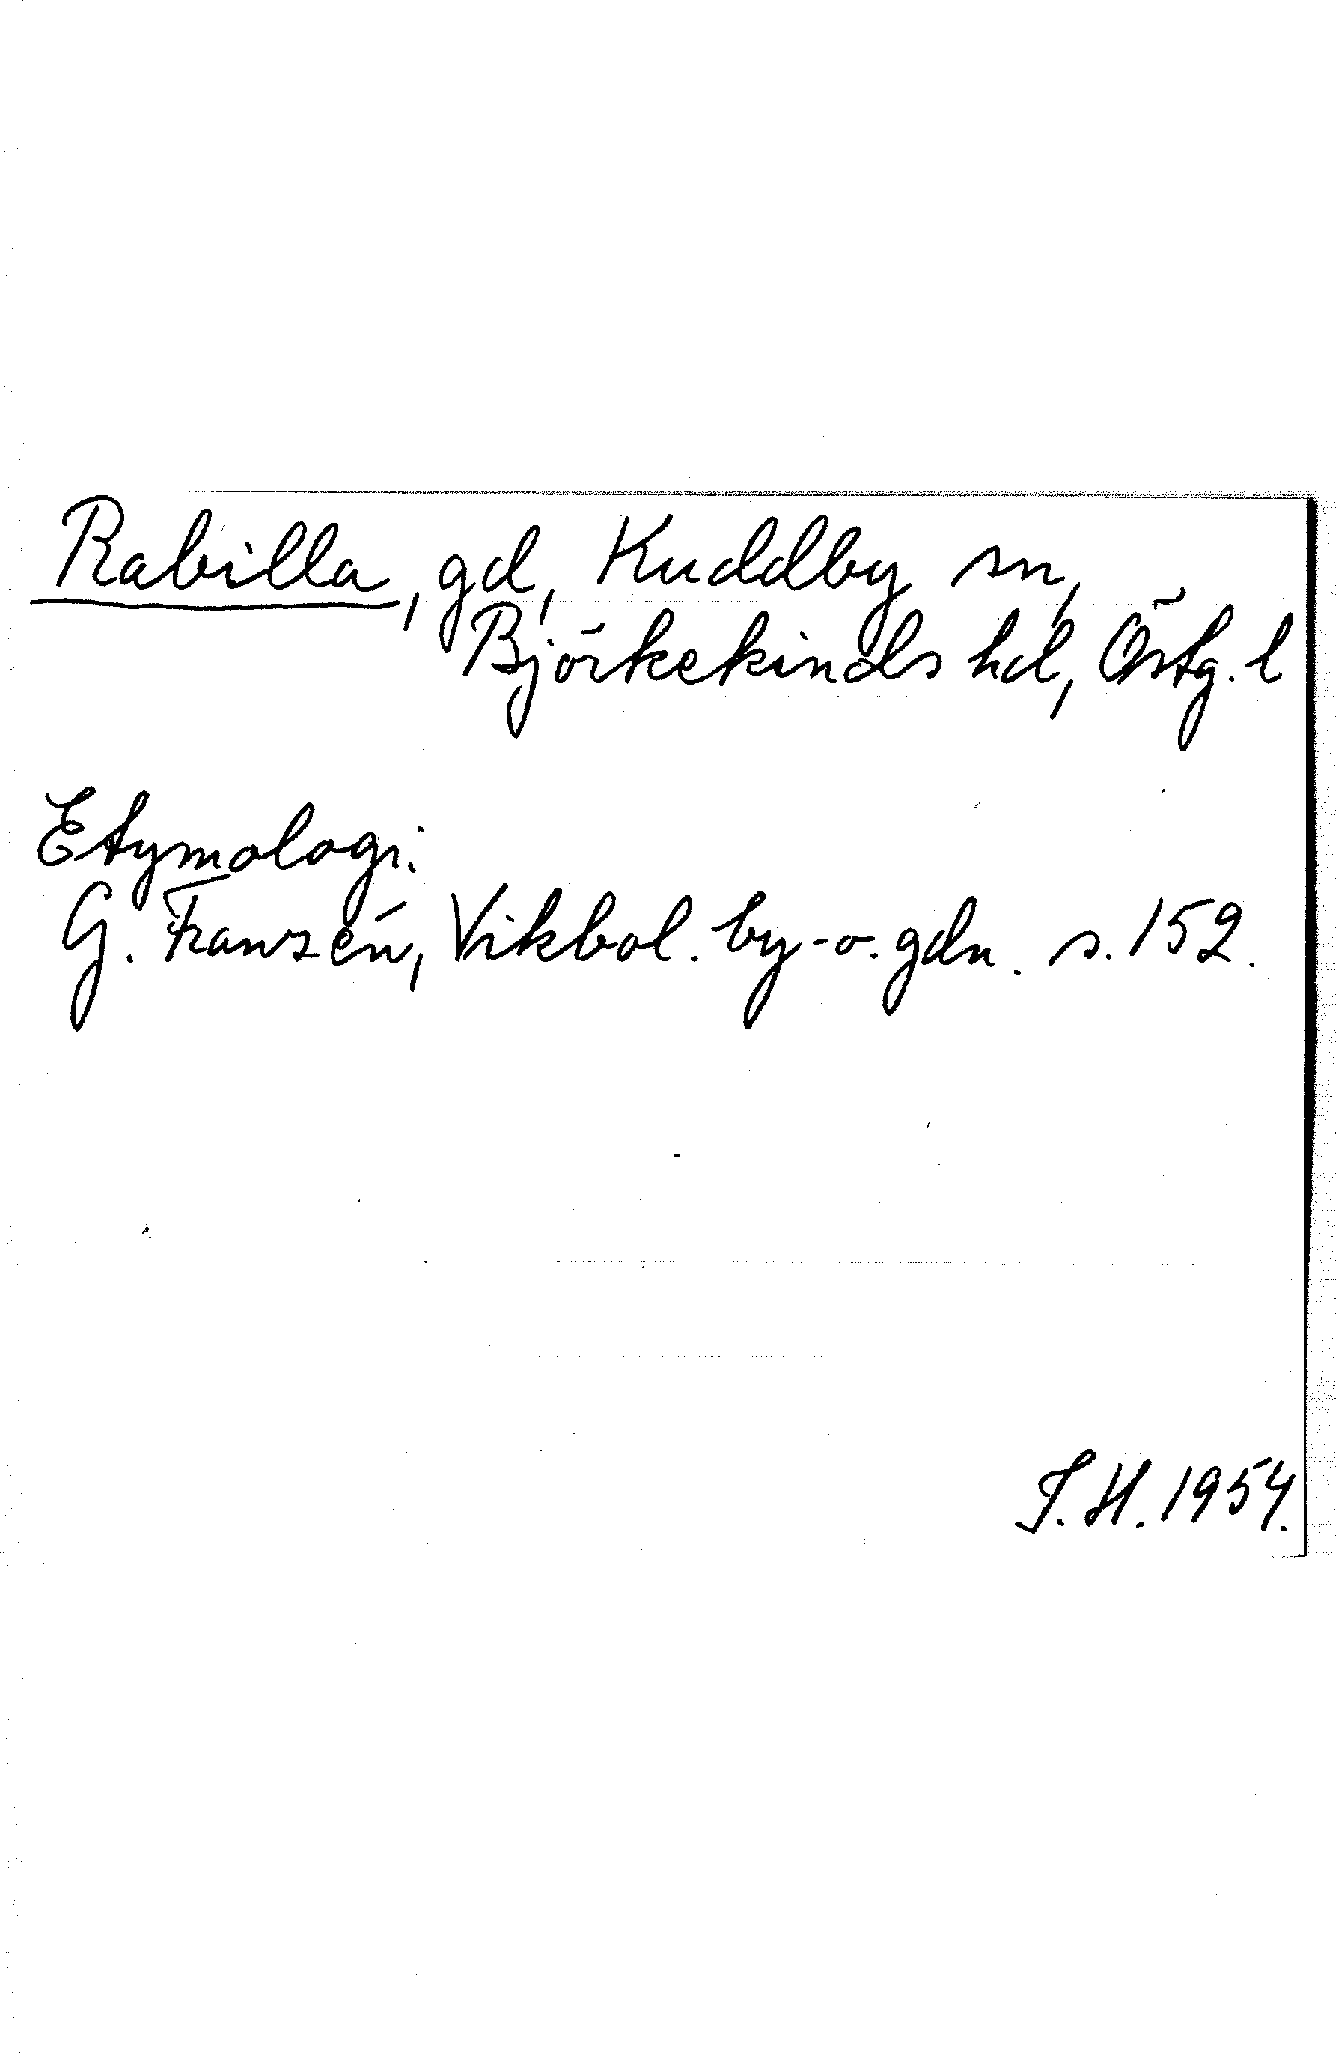 Rabilla, gd, Kuddby sn,
Björkekinds hd, Östg. l
Etymologi:
G. Franzén, Vikbol. by- o. gdn. s. 152.
S. H. 1954.